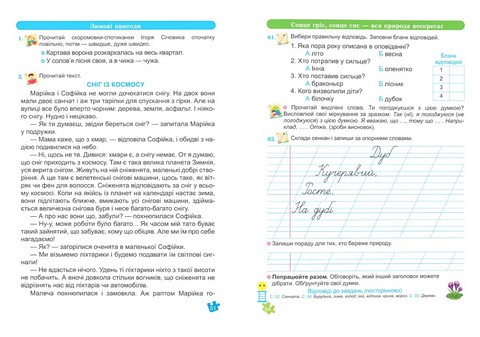 Зимові пригоди
1. Прочитай скоромовки-спотиканки Ігоря Січовика спочатку
повільно, потім — швидше, дуже швидко.
Картава ворона розкаркалась на весь квартал.
У солов'я пісня своя, а в чижа — чужа.
2. Прочитай текст.
СНІГ ІЗ КОСМОСУ
Марійка і Софійка не могли дочекатися снігу. На двох вони
мали двоє санчат і аж три тарілки для спускання з гірки. Але на
вулиці все було вперто чорним: дерева, земля, асфальт. І ніяко-
го снігу. Нудно і нецікаво.
— Як ти думаєш, звідки береться сніг? — запитала Марійка
у подружки.
— Мама каже, що з хмар, — відповіла Софійка, і обидві з на-
дією подивилися на небо.
— Ні, щось не те. Дивися: хмари є, а снігу немає. От я думаю,
що сніг приходить з космосу. Там є така велика планета Зимній
уся вкрита снігом. Живуть на ній сніженята, маленькі добрі ство-
ріння. А ще там є велетенські снігові машини, щось таке, як віт-
ряк чи фен для волосся. Сніженята відповідають за сніг у всьо-
му космосі. Коли на якійсь із планет на календарі настає зима,
вони підлітають ближче, вмикають усі снігові машини, здійма-
ється величезна снігова буря і несе багато-багато снігу.
— А про нас вони що, забули? — похнюпилася Софійка.
— Ну-у, може роботи було багато... Як за часом мій тато буває
такий зайнятий, що забуває, кому що обіцяв. Але ми їм про себе
нагадаємо!
— Як? — загорілися оченята в маленької Софійки.
— Ми візьмемо ліхтарики і будемо подавати їм світлові сиг-
нали!
— Не вдасться нічого. Удень ті ліхтарики ніхто з такої висоти
не побачить. А вночі довкола стільки вогників, що сніженята не
відрізнять нас від ліхтарів чи автомобілів.
Малеча похнюпилася і замовкла. Аж раптом Марійка го-
51
Сонце гріє, сонце сяє — вся природа воскресає
61. Вибери правильну відповідь. Заповни бланк відповідей.
1. Яка пора року описана в оповіданні?
А літо Б весна
2. Хто потрапив у сильце?
А Інна Б оленятко
3. Хто поставив сильце?
А браконьєр Б лісник
4. Кого визволили діти?
А білочку Б дубок
Бланк
відповідей
1
2
3
4
Прочитай виділені слова. Ти погоджуєшся з цією думкою?
Висловлюй свої міркування за зразком: Так (ні), я погоджуюся (не
погоджуюся) з цією думкою. Я вважаю, що ... тому що ... Напри-
клад, ... Отже, (зроби висновок).
62. Склади сенкан і запиши за опорними словами.
Дуб
Кучерявий,
Росте,
На дубі
Запиши пораду для тих, хто береже природу.
Попрацюйте разом. Обговоріть, який інший заголовок можете
дібрати. Обґрунтуйте свої думки.
Відповіді до завдань (посторінково)